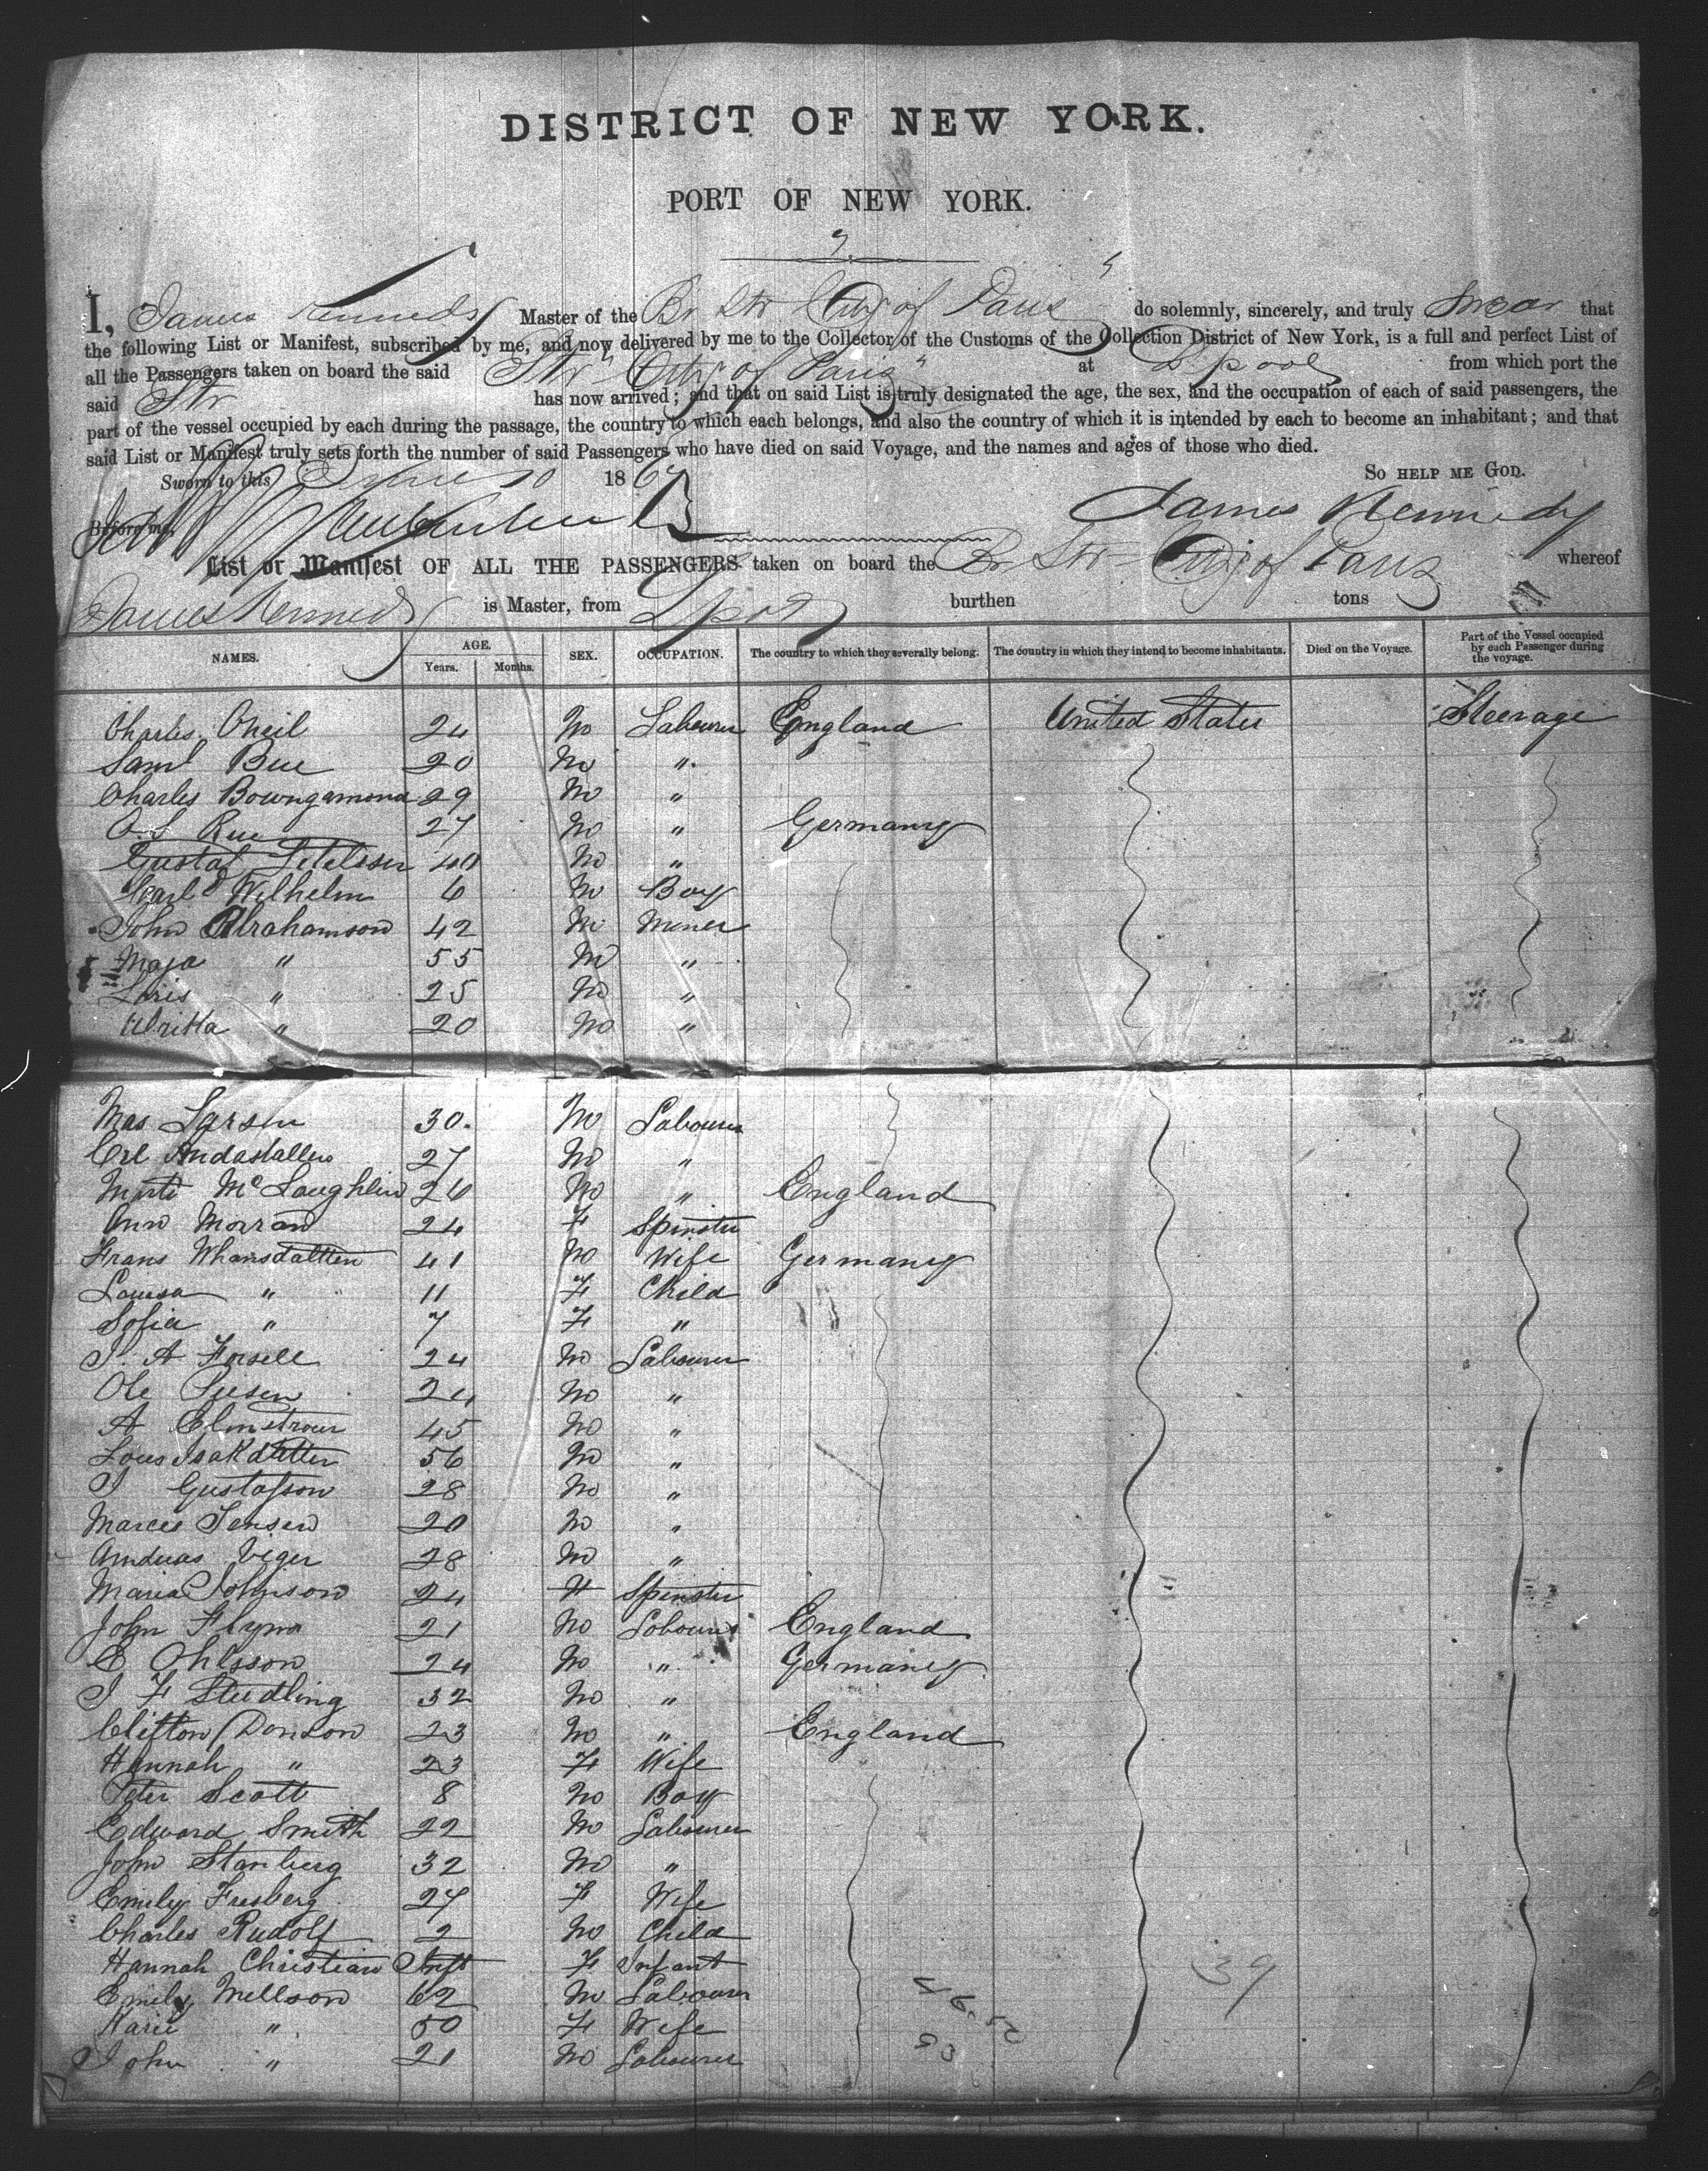 DISTRICT OF NEW YORK.
PORT OF NEW YORK.
I, James Kennedy Master of the Br Str City of Paris do solemnly, sincerely, and truly swear that
the following List or Manifest, subscribed by me, and now delivered by me to the Collector of the Customs of the Collection District of New York, is a full and perfect List of
all the Passengers taken on board the said Str "City of Paris" at Lpool from which port the
said Str has now arrived; and that on said List is truly designated the age, the sex, and the occupation of each of said passengers, the
part of the vessel occupied by each during the passage, the country to which each belongs, and also the country of which it is intended by each to become an inhabitant; and that
said List or Manifest truly sets forth the number of said Passengers who have died on said Voyage, and the names and ages of those who died.
Sworn to this June 10 186 So HELP ME GOD.
Before me, James Kennedy
List or Manifest OF ALL THE PASSENGERS taken on board the Br Str City of Paris whereof
James Kennedy is Master, from Lpool burthen tons
NAMES. AGE. Years. Months. SEX. OCCUPATION. The country to which they severally belong. The country in which they intend to become inhabitants. Died on the Voyage. Part of the Vessel occupied by each Passenger during the voyage.
Charles Oneil 24 M Labourer England United States Steerage
Saml Bue 20 M "
Charles 29 M "
Rue 27 M " Germany
Gustaf 40 M "
Carl Wilhelm 6 M Boy
John Abrahamson 42 M Miner
Maja " 55 M "
" 25 M "
Ulrika " 20 M "
Mas Larsen 30 M Labourer
27 M "
McLaughlin 26 M " England
Ann Morran 24 F Spinster
Frans 41 M Wife Germany
Louisa " 11 F Child
Sofia " 7 F "
J. A Forsell 24 M Labourer
Ole 24 M "
A Elmstrom 45 M "
56 M "
J Gustafsson 28 M "
Jensen 20 M "
28 M "
Maria Johnson 24 F Spinster
John Flynn 21 M Labourer England
E Ohlsson 24 M " Germany
J F Studling 32 M "
Clifton 23 M " England
Hannah " 23 F Wife
Peter Scott 8 M Boy
Edward Smith 22 M Labourer
John Stanberg 32 M "
Emily 27 F Wife
Charles Rudolf 2 M Child
Hannah Christian Inft F Infant
Emily Mellson 62 M Labourer
Karie " 50 F Wife
John " 21 M Labourer
39